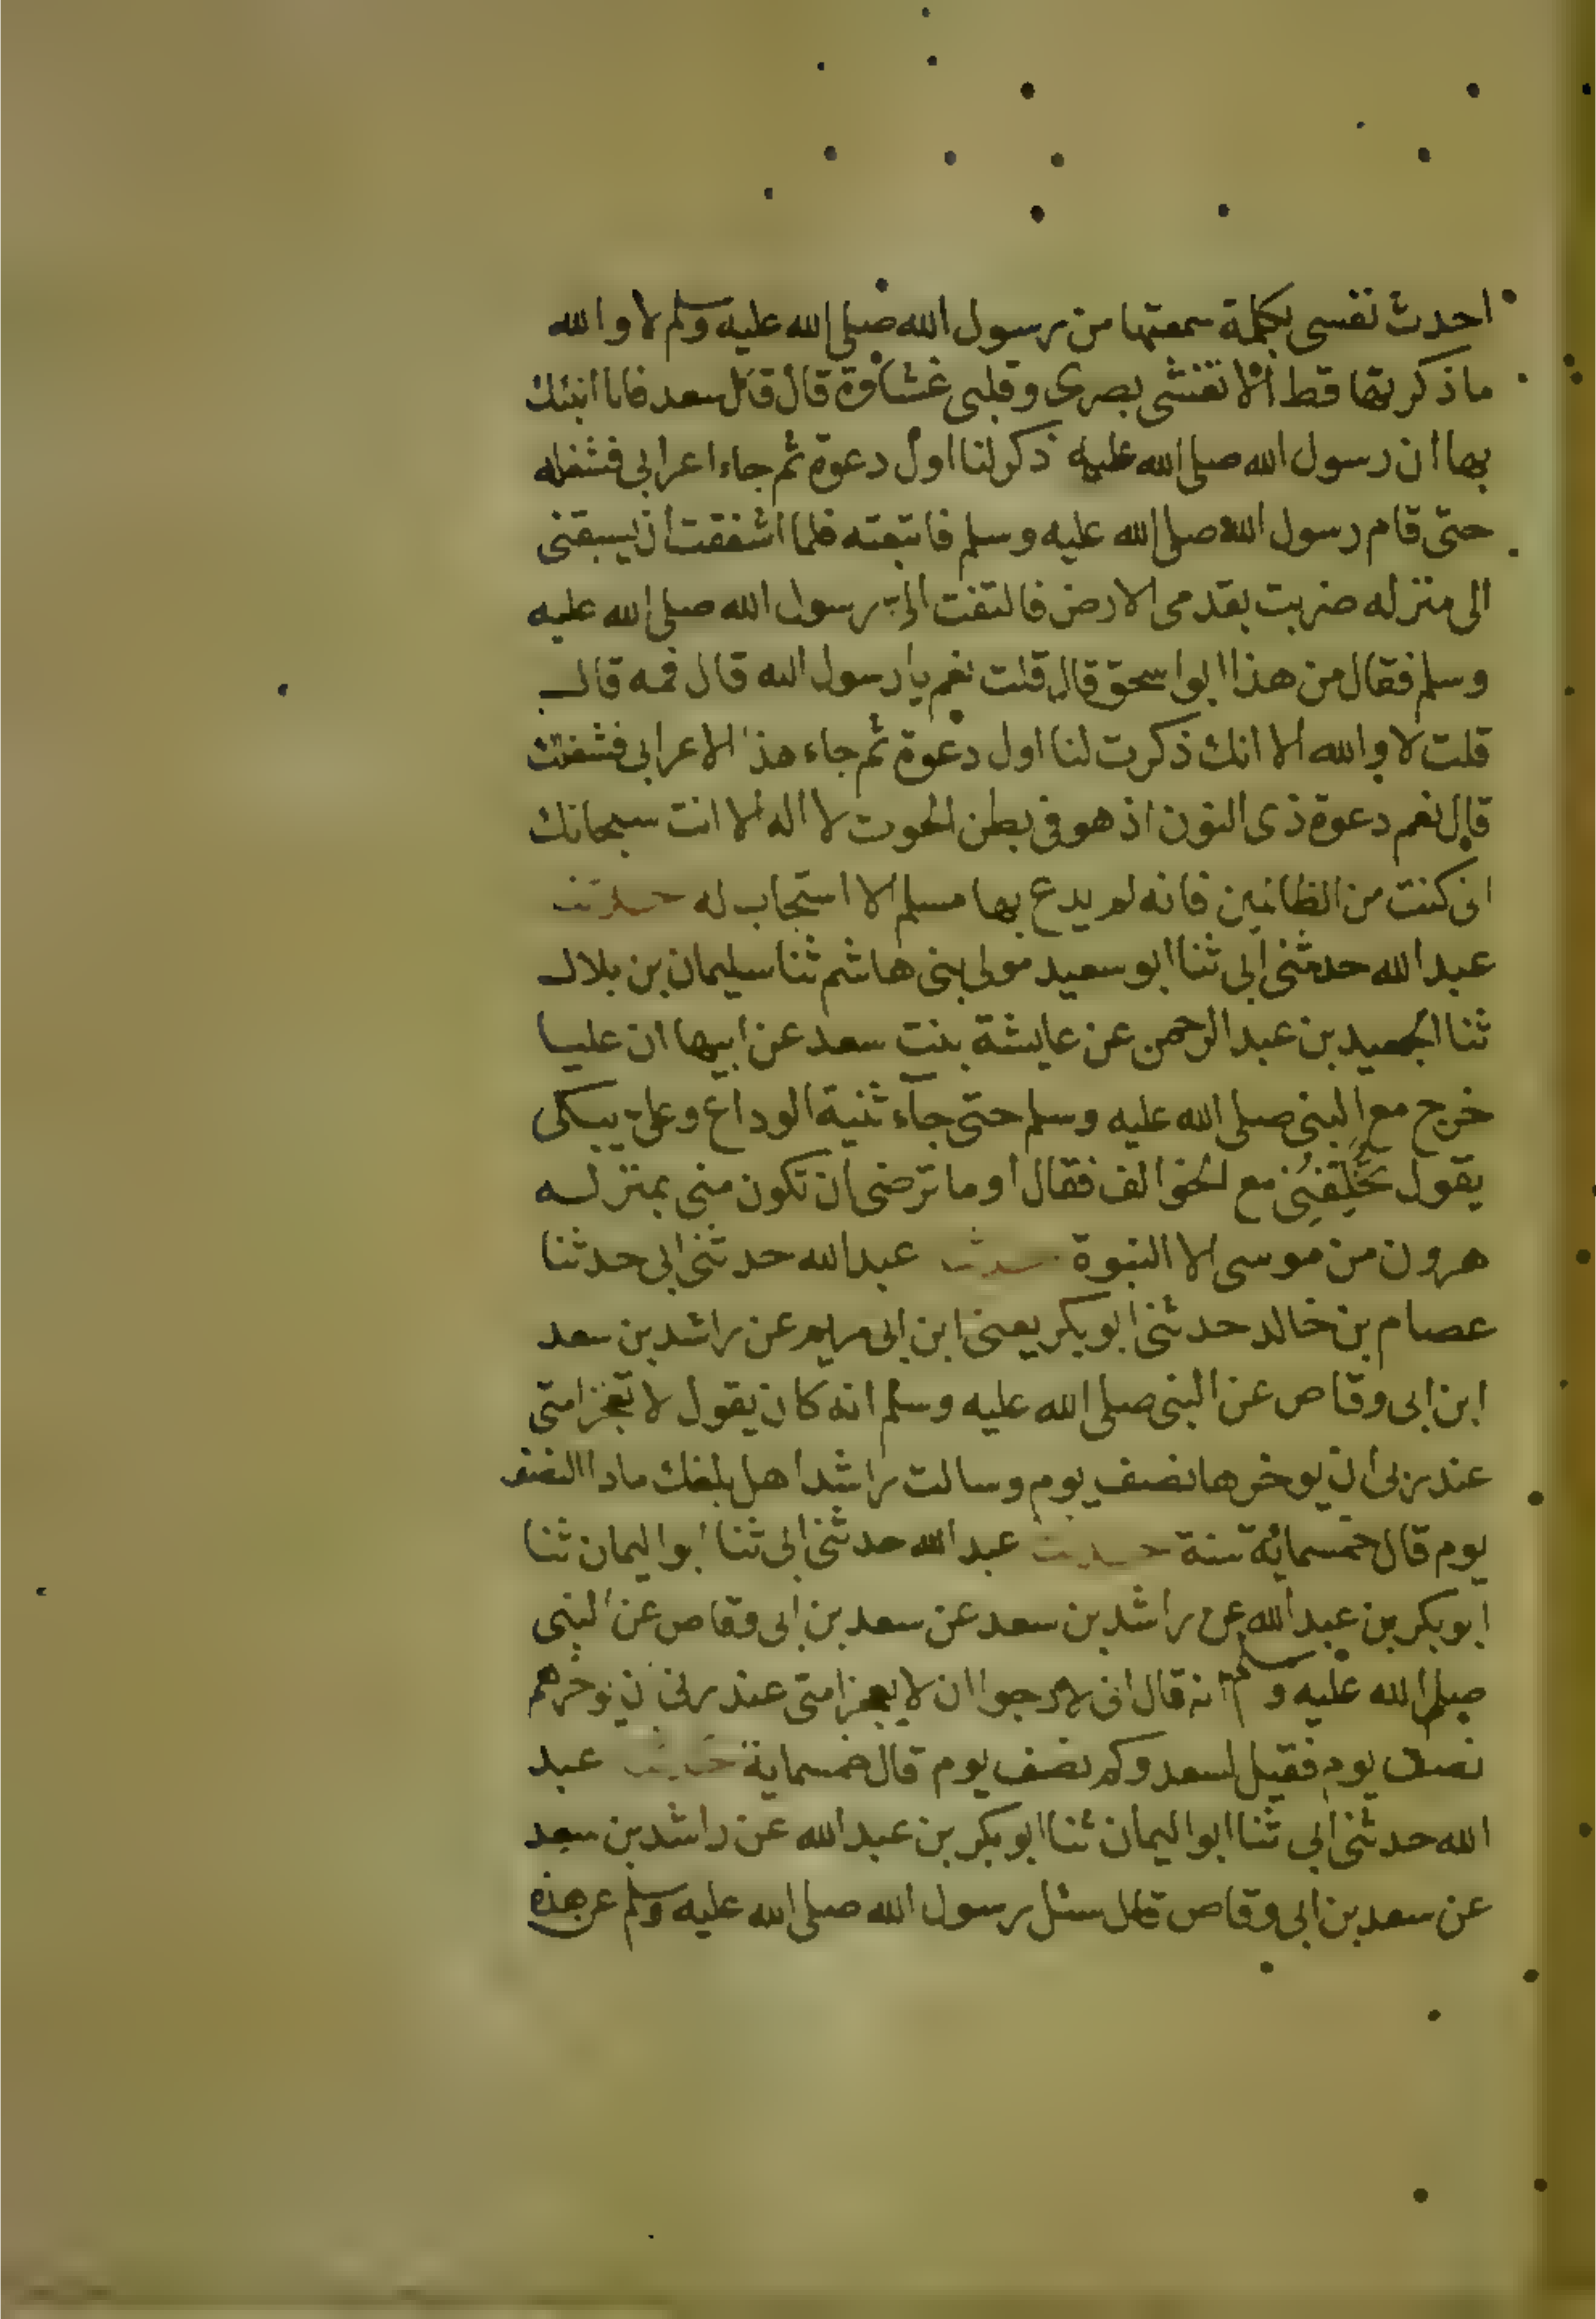 احدث نفسى بكلمة سمعتها من رسول الله صلى الله عليه وسلم لا والله
ما ذكرتها قط الا تغشى بصرى وقلبى غشاوة قال قال سعد فانا انبئك
بها ان رسول الله صلى الله عليه ذكر لنا اول دعوة ثم جاء اعرابى فشغله
حتى قام رسول الله صلى الله عليه وسلم فاتبعته فلما اشفقت ان يسبقنى
الى منزله ضربت بقدمى الارض فالتفت الىّ رسول الله صلى الله عليه
وسلم فقال من هذا ابو اسحق قال قلت نعم يا رسول الله قال فمه قال
قلت لا والله الا انك ذكرت لنا اول دعوة ثم جاء هذا الاعرابى فشغلك
قال نعم دعوة ذى النون اذ هو فى بطن الحوت لا اله الا انت سبحانك
انى كنت من الظالمين فانه لم يدع بها مسلم الا استجاب له حدثنا
عبد الله حدثنى ابى ثنا ابو سعيد مولى بنى هاشم ثنا سليمان بن بلال
ثنا الجعيد بن عبد الرحمن عن عايشة بنت سعد عن ابيها ان عليا
خرج مع النبى صلى الله عليه وسلم حتى جآء ثنية الوداع وعلىّ يبكى
يقول تُخَلِّفُنِى مع الخوالف فقال او ما ترضى ان تكون منى بمنزله
هرون من موسى الا النبوة حدثنا عبد الله حدثنى ابى حدثنا
عصام بن خالد حدثنى ابو بكر يعنى ابن ابى مريم عن راشد بن سعد
ابن ابى وقاص عن النبى صلى الله عليه وسلم انه كان يقول لا تعجز امتى
عند ربى ان يوخرها نصف يوم وسالت راشدا هل بلغك ماذا النصف
يوم قال خمسمائة سنة حدثنا عبد الله حدثنى ابى ثنا ابو اليمان ثنا
ابو بكر بن عبد الله عن راشد بن سعد عن سعد بن ابى وقاص عن النبى
صلى الله عليه وسلم انه قال انى لارجوا ان لا يعجز امتى عند ربى ان يوخرهم
نصف يوم فقيل لسعد وكم نصف يوم قال خمسماية حدثنا عبد
الله حدثنى ابى ثنا ابو اليمان ثنا ابو بكر بن عبد الله عن راشد بن سعد
عن سعد بن ابى وقاص قال سئل رسول الله صلى الله عليه وسلم عن هذه